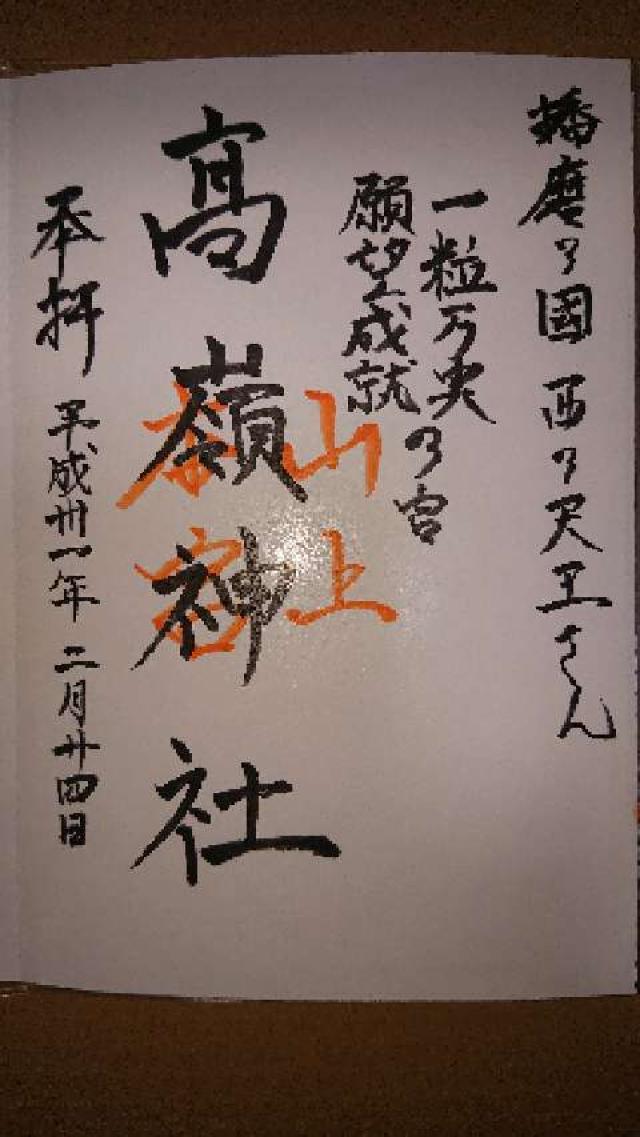 播磨ノ國 西ノ天王さん
一粒万実
願望成就
の宮
高嶺神社
山上
奉拝
平成卅一年 二月廿四日